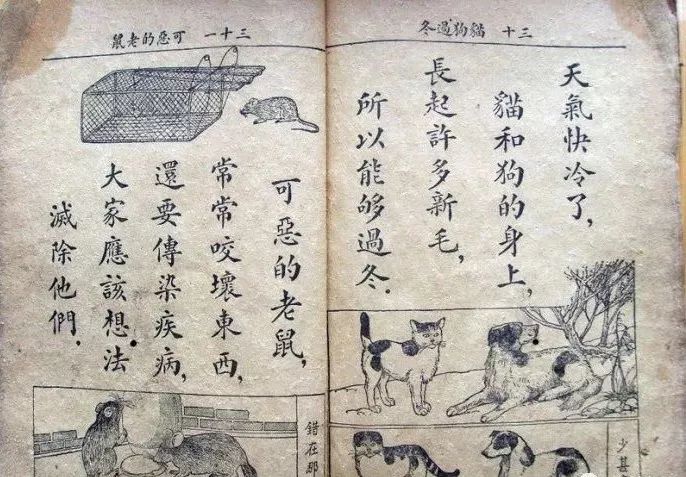 三十 貓狗過冬
天氣快冷了,
貓和狗的身上,
長起許多新毛,
所以能够過冬.
少甚
三十一 可惡的老鼠
可惡的老鼠,
常常咬壞東西,
還要傳染疾病,
大家應該想法
滅除他們.
錯在那